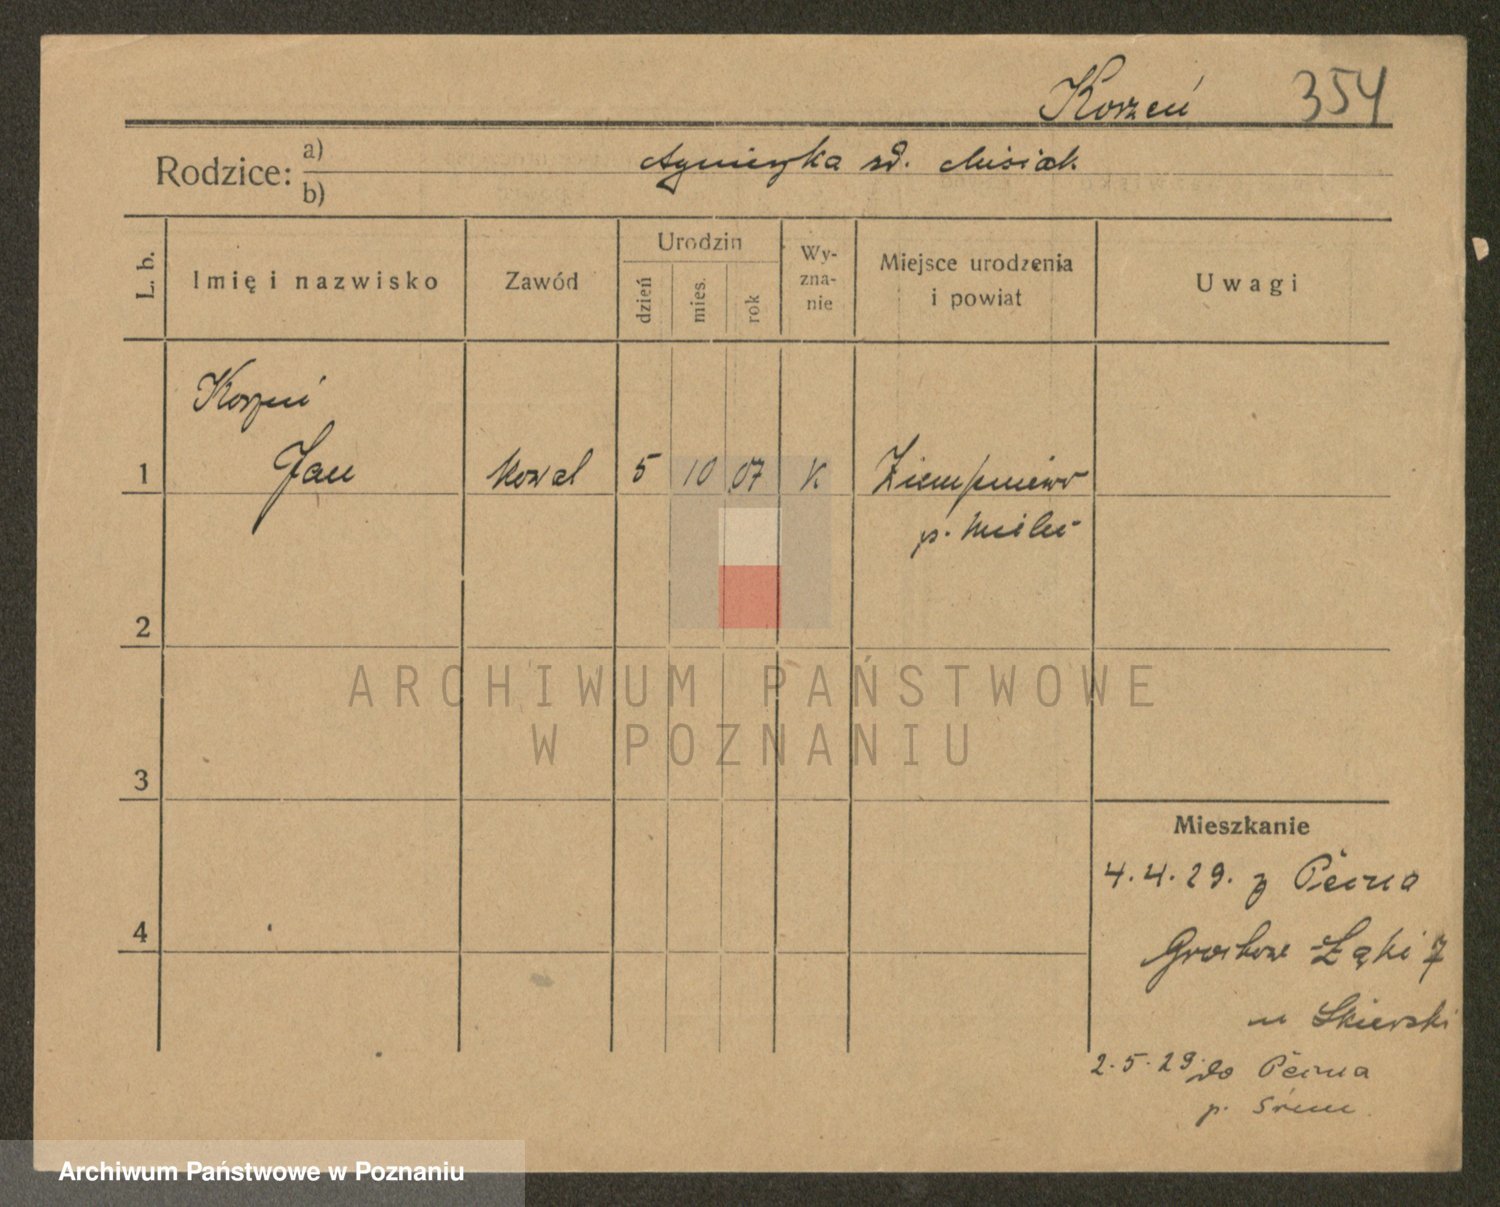 Korzeń 354
Rodzice: a) Agnieszka zd. Misiak
b)
L. b. Imię i nazwisko Zawód Urodzin Wy-zna-nie Miejsce urodzenia i powiat Uwagi
dzień mies. rok
Korzeń
1 Jan kowal 5 10 07 K
2
3
4
Mieszkanie
4.4.29. z Pecna
Łąki 7
u Skierski
2.5.29 do Pecna
p. Śrem
ARCHIWUM PAŃSTWOWE
W POZNANIU
Archiwum Państwowe w Poznaniu